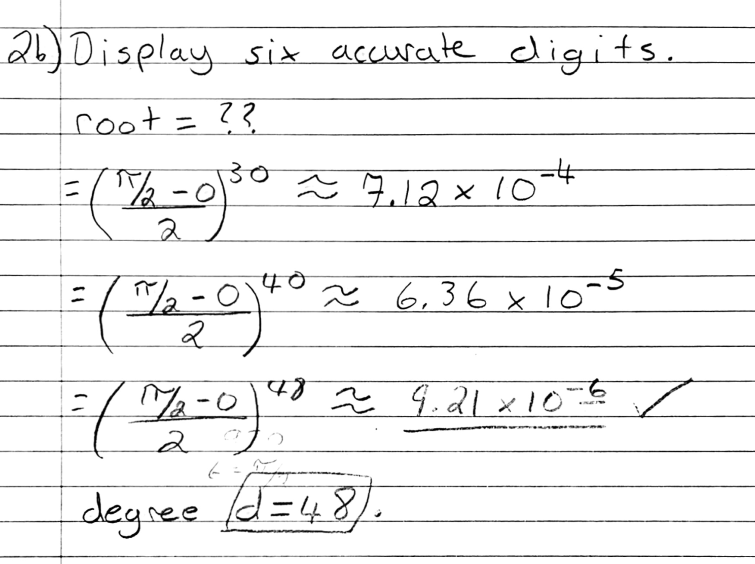 2b) Display six accurate digits.
root = ??
= ((π/2 - 0)/2)^30 ≈ 7.12 × 10^-4
= ((π/2 - 0)/2)^40 ≈ 6.36 × 10^-5
= ((π/2 - 0)/2)^48 ≈ 9.21 × 10^-6 ✓
degree d=48.